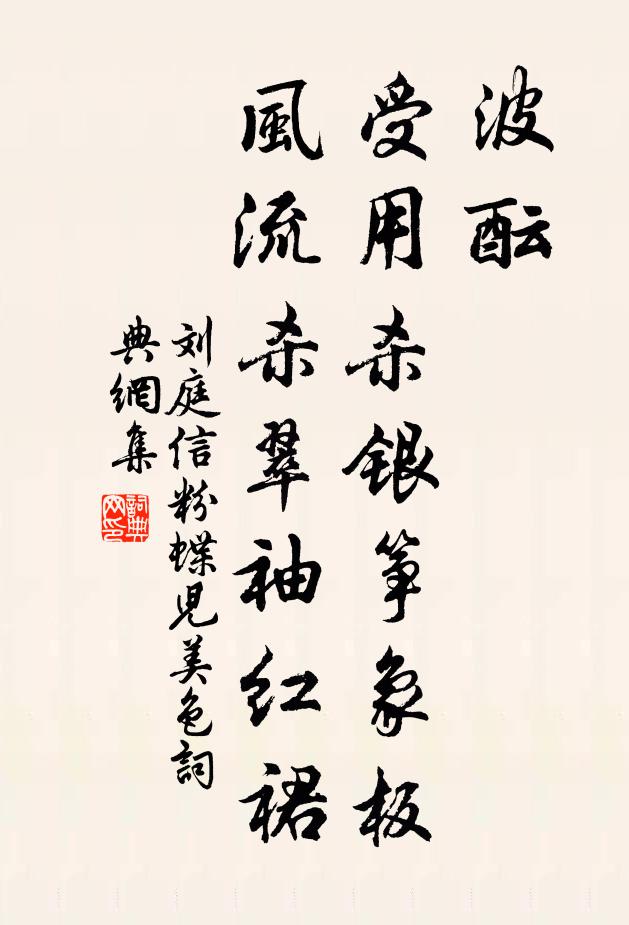 波酝
受用杀银筝象板
風流杀翠袖红裙
刘庭信粉蝶児美色詞
典網集
詞典网印